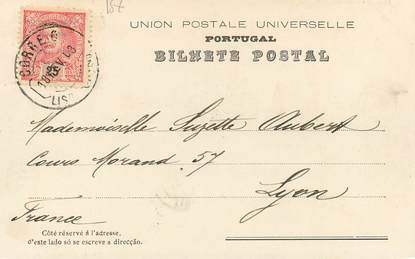 157
UNION POSTALE UNIVERSELLE
PORTUGAL
BILHETE POSTAL
CORREIO
LIS
Mademoiselle Suzette Aubert
Cours Morand 57
Lyon
France
Côté réservé à l'adresse,
d'este lado só se escreve a direcção.